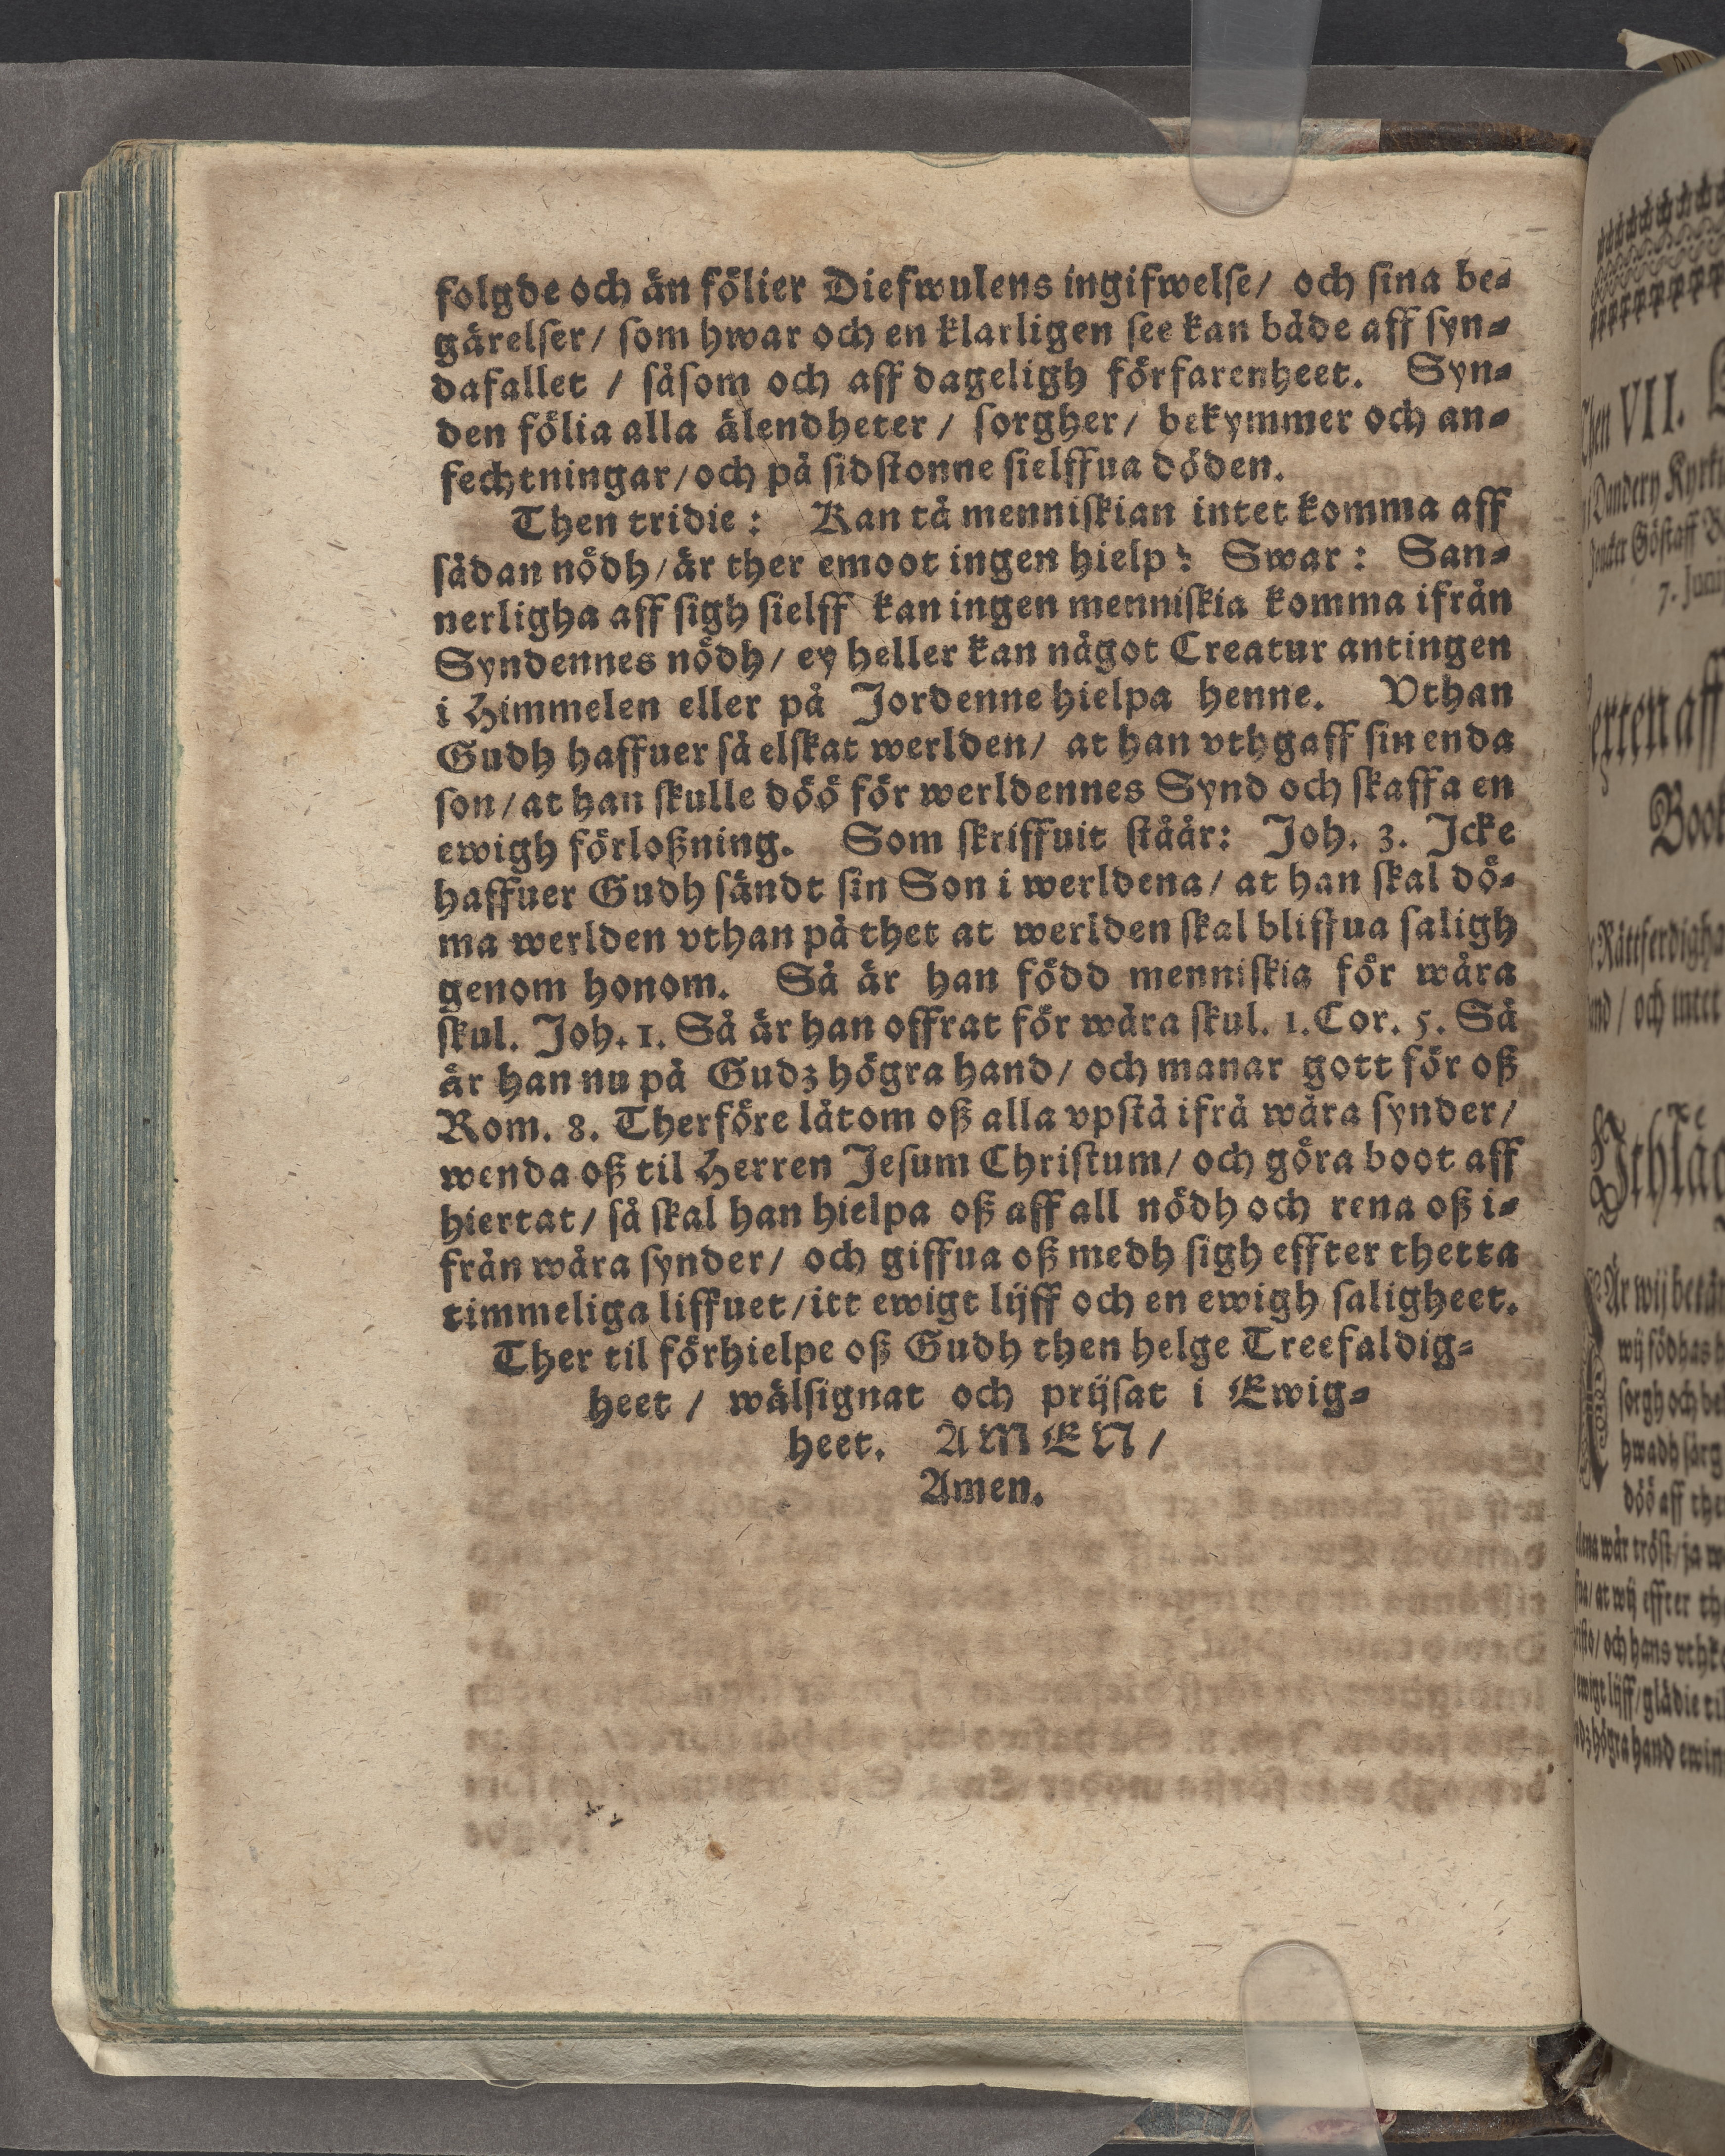 folgde och än fölier Diefwulens ingifwelse/ och sina be-
gärelser/ som hwar och en klarligen see kan både aff syn-
dafallet / såsom och aff dageligh förfarenheet. Syn-
den fölia alla älendheter / sorgher/ bekymmer och an-
fechtningar/och på sidstonne sielffua döden.
Then tridie: Kan tå menniskian intet komma aff
sådan nödh/är ther emoot ingen hielp? Swar: San-
nerligha aff sigh sielff kan ingen menniskia komma ifrån
Syndennes nödh/ ey heller kan något Creatur antingen
i Himmelen eller på Jordenne hielpa henne. Vthan
Gudh haffuer så elskat werlden/ at han vthgaff sin enda
son/at han skulle döö för werldennes Synd och skaffa en
ewigh förloßning. Som skriffuit ståår: Joh. 3. Icke
haffuer Gudh sändt sin Son i werldena/ at han skal dö-
ma werlden vthan på thet at werlden skal bliffua saligh
genom honom. Så är han född menniskia för wåra
skul. Joh. 1. Så är han offrat för wåra skul. 1. Cor. 5. Så
är han nu på Gudz högra hand/ och manar gott för oß
Rom. 8. Therföre låtom oß alla vpstå ifrå wåra synder/
wenda oß til Herren Jesum Christum/ och göra boot aff
hiertat/ så skal han hielpa oß aff all nödh och rena oß i-
från wåra synder/ och giffua oß medh sigh effter thetta
timmeliga liffuet/itt ewigt lijff och en ewigh saligheet.
Ther til förhielpe oß Gudh then helge Treefaldig-
heet / wälsignat och prijsat i Ewig-
heet. AMEN/
Amen.
Then VII.
Dandery Kyrki
Göstaff
7. Junij
texten aff
Book
Rättferdigha
/ och intet
Är wij betän
wij födhas
sorgh och be
hwadh sörg
döö aff the
wår tröst/ja w
/at wij effter th
/och hans vthk
ewigt lijff/glädie til
högra hand ewin